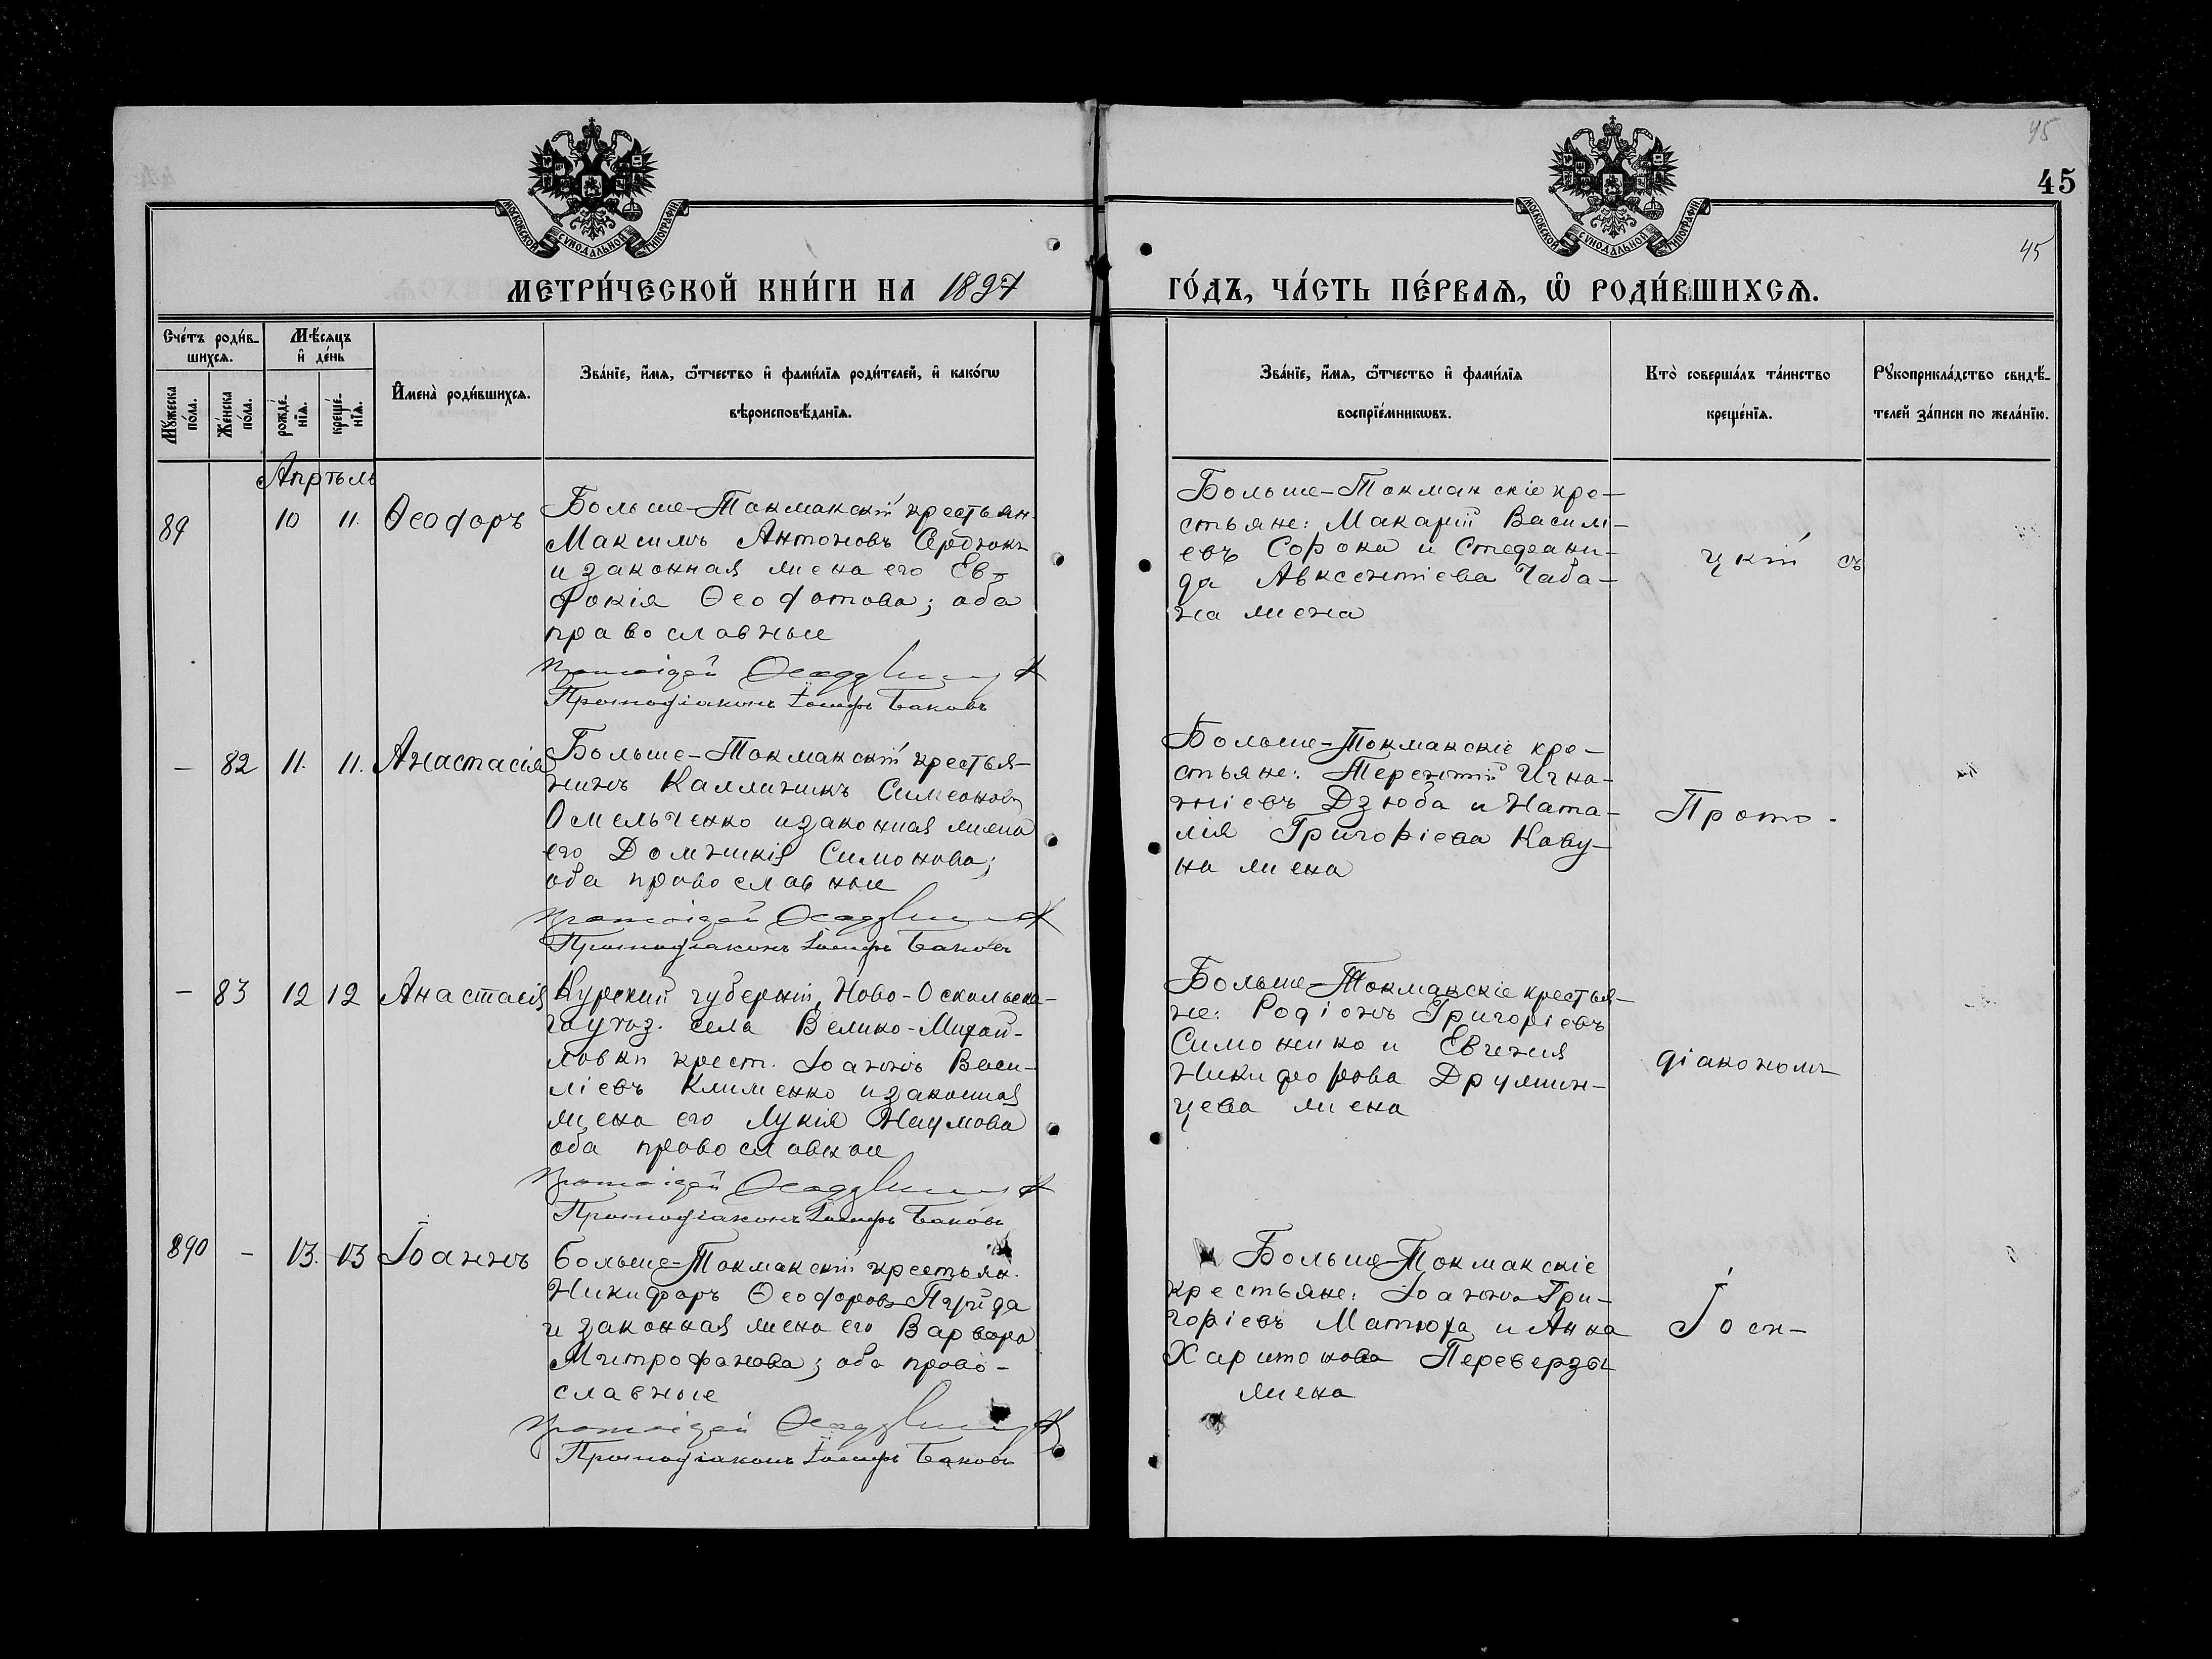 45
45
45
МОСКОВСКОЙ СУНОДАЛЬНОЙ ТИПОГРАФІИ
МОСКОВСКОЙ СУНОДАЛЬНОЙ ТИПОГРАФІИ
МЕТРИ́ЧЕСКОЙ КНИ́ГИ НА 1897
ГО́ДЪ, ЧА́СТЬ ПЕ́РВАѦ, Ѡ РОДИ́ВШИХСѦ.
Сче́тъ роди́в-
шихсѧ.
Мѣ́сѧцъ
и҆ де́нь
Мꙋ́жеска
по́ла.
Же́нска
по́ла.
рожде́-
нїѧ.
креще́-
нїѧ.
И҆мена̀ роди́вшихсѧ.
Зва́нїе, и҆́мѧ, ѻ҆́тчество и҆ фами́лїѧ роди́телей, и҆ како́гѡ
вѣроисповѣ́данїѧ.
Зва́нїе, и҆́мѧ, ѻ҆́тчество и҆ фами́лїѧ
воспрїе́мникѡвъ.
Кто̀ соверша́лъ та́инство
креще́нїѧ.
Рꙋкоприкла́дство свидѣ́-
телей за́писи по жела́нїю.
Апрѣль
89 10 11. Ѳеодоръ
Больше-Токмакскій крестьян.
Максимъ Антоновъ Сердюкъ
и законная жена его Ев-
докія Ѳеодотова; оба
православные
Протоіерей
Протодіаконъ Іосифъ Баковъ
Больше-Токмакскіе кре-
стьяне: Макарій Василі-
евъ Сорока и Стефани-
да Авксентіева Чаба-
на жена
цкій съ
— 82 11. 11. Анастасія
Больше-Токмакскій крестья-
нинъ Каллиникъ Симеоновъ
Омельченко и законная жена
его Домникія Симонова;
оба православные
Протоіерей
Протодіаконъ Іосифъ Баковъ
Больше-Токмакскіе кре-
стьяне: Терентій Игна-
тіевъ Дзюба и Ната-
лія Григоріева Каву-
на жена
Прото-
— 83 12 12 Анастасія
Курской губерніи, Ново-Оскольска-
го уѣз. села Велико-Михай-
ловки крест. Іоаннъ Васи-
ліевъ Клименко и законная
жена его Лукія Наумова
оба православные
Протоіерей
Протодіаконъ Іосифъ Баковъ
Больше-Токмакскіе крестья-
не: Родіонъ Григоріевъ
Симоненко и Евгенія
Никифорова
цева жена
діакономъ
890 — 13. 13 Іоаннъ
Больше-Токмакскій крестьян.
Никифоръ Ѳеодоровъ
и законная жена его Варвара
Митрофанова; оба право-
славные
Протоіерей
Протодіаконъ Іосифъ Баковъ
Больше-Токмакскіе
крестьяне: Іоаннъ Гри-
горіевъ Матюха и Анна
Харитонова Переверзы
жена
Іоси-